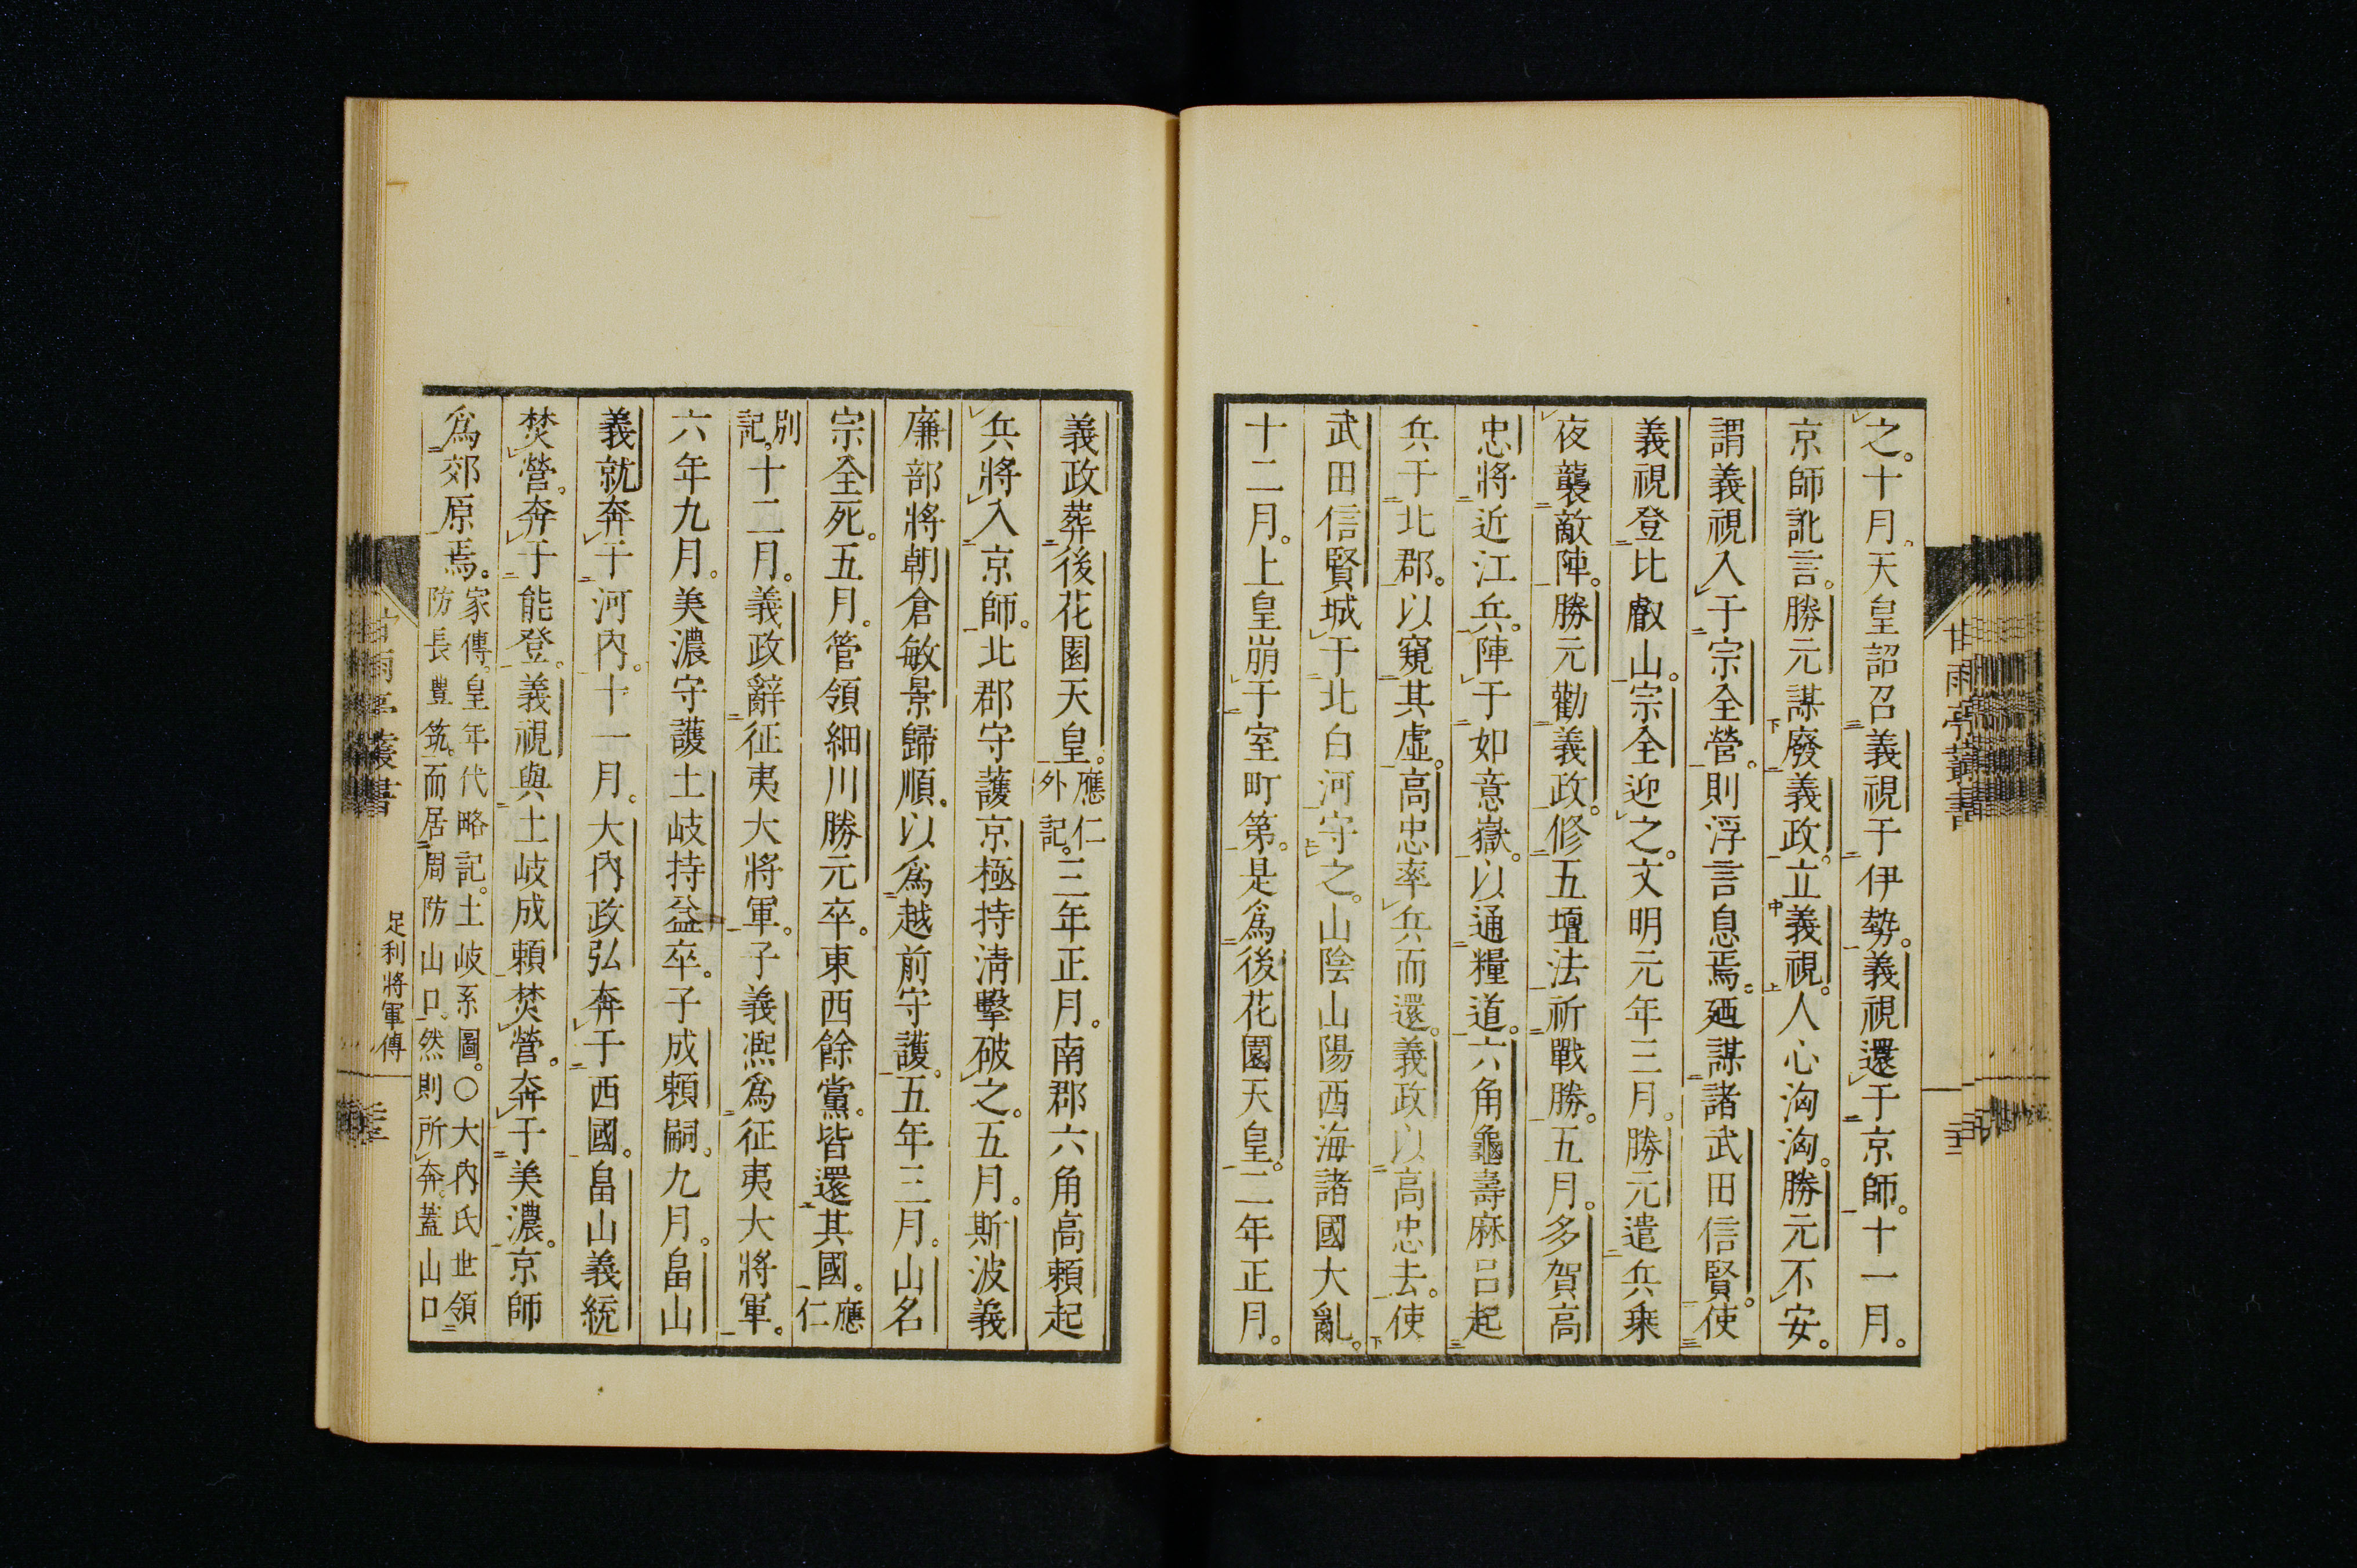 之。十月。天皇詔召義視于伊勢。義視還于京師。十一月。
京師訛言。勝元謀廢義政。立義視。人心洶洶。勝元不安。
謂義視入于宗全營。則浮言息焉。廼謀諸武田信賢。使
義視登比叡山。宗全迎之。文明元年三月。勝元遣兵乗
夜襲敵陣。勝元勸義政。修五壇法祈戰勝。五月。多賀高
忠將近江兵。陣于如意嶽。以通糧道。六角龜壽麻呂起
兵于北郡。以窺其虛。高忠率兵而還。義政以高忠去。使
武田信賢城于北白河守之。山陰山陽西海諸國大亂。
十二月。上皇崩于室町第。是爲後花園天皇。二年正月。
義政葬後花園天皇。應仁外記。三年正月。南郡六角高頼起
兵將入京師。北郡守護京極持清擊破之。五月。斯波義
廉部將朝倉敏景歸順。以爲越前守護。五年三月。山名
宗全死。五月。管領細川勝元卒。東西餘黨。皆還其國。應仁
別記。十二月。義政辭征夷大將軍。子義凞爲征夷大將軍。
六年九月。美濃守護土岐持益卒。子成頼嗣。九月。畠山
義就奔于河內。十一月。大內政弘奔于西國。畠山義統
焚營。奔于能登。義視與土岐成頼焚營。奔于美濃。京師
爲郊原焉。家傳。皇年代略記。土岐系圖。○大內氏世領防長豊筑。而居周防山口。然則所奔。蓋山口
甘雨亭叢書
足利將軍傳